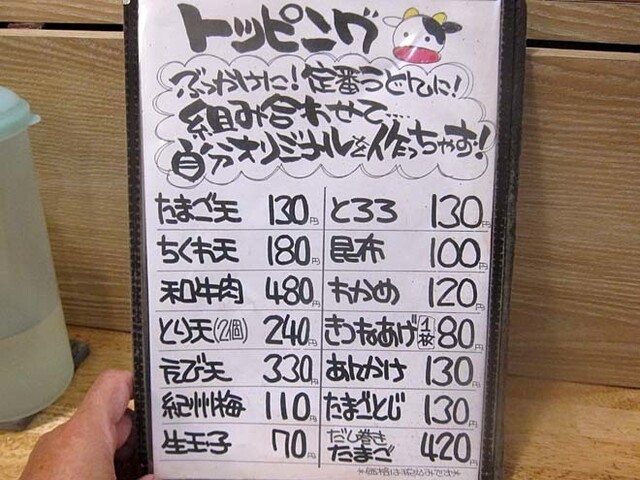 トッピング
ぶっかけに!定番うどんに!
組み合わせて...
自分オリジナルを作っちゃお!
たまご天 130円 とろろ 130円
ちくわ天 180円 昆布 100円
和牛肉 480円 わかめ 120円
とり天(2個) 240円 きつねあげ 1枚 80円
えび天 330円 あんかけ 130円
紀州梅 110円 たまごとじ 130円
生玉子 70円 だし巻きたまご 420円
※価格は税込みです※